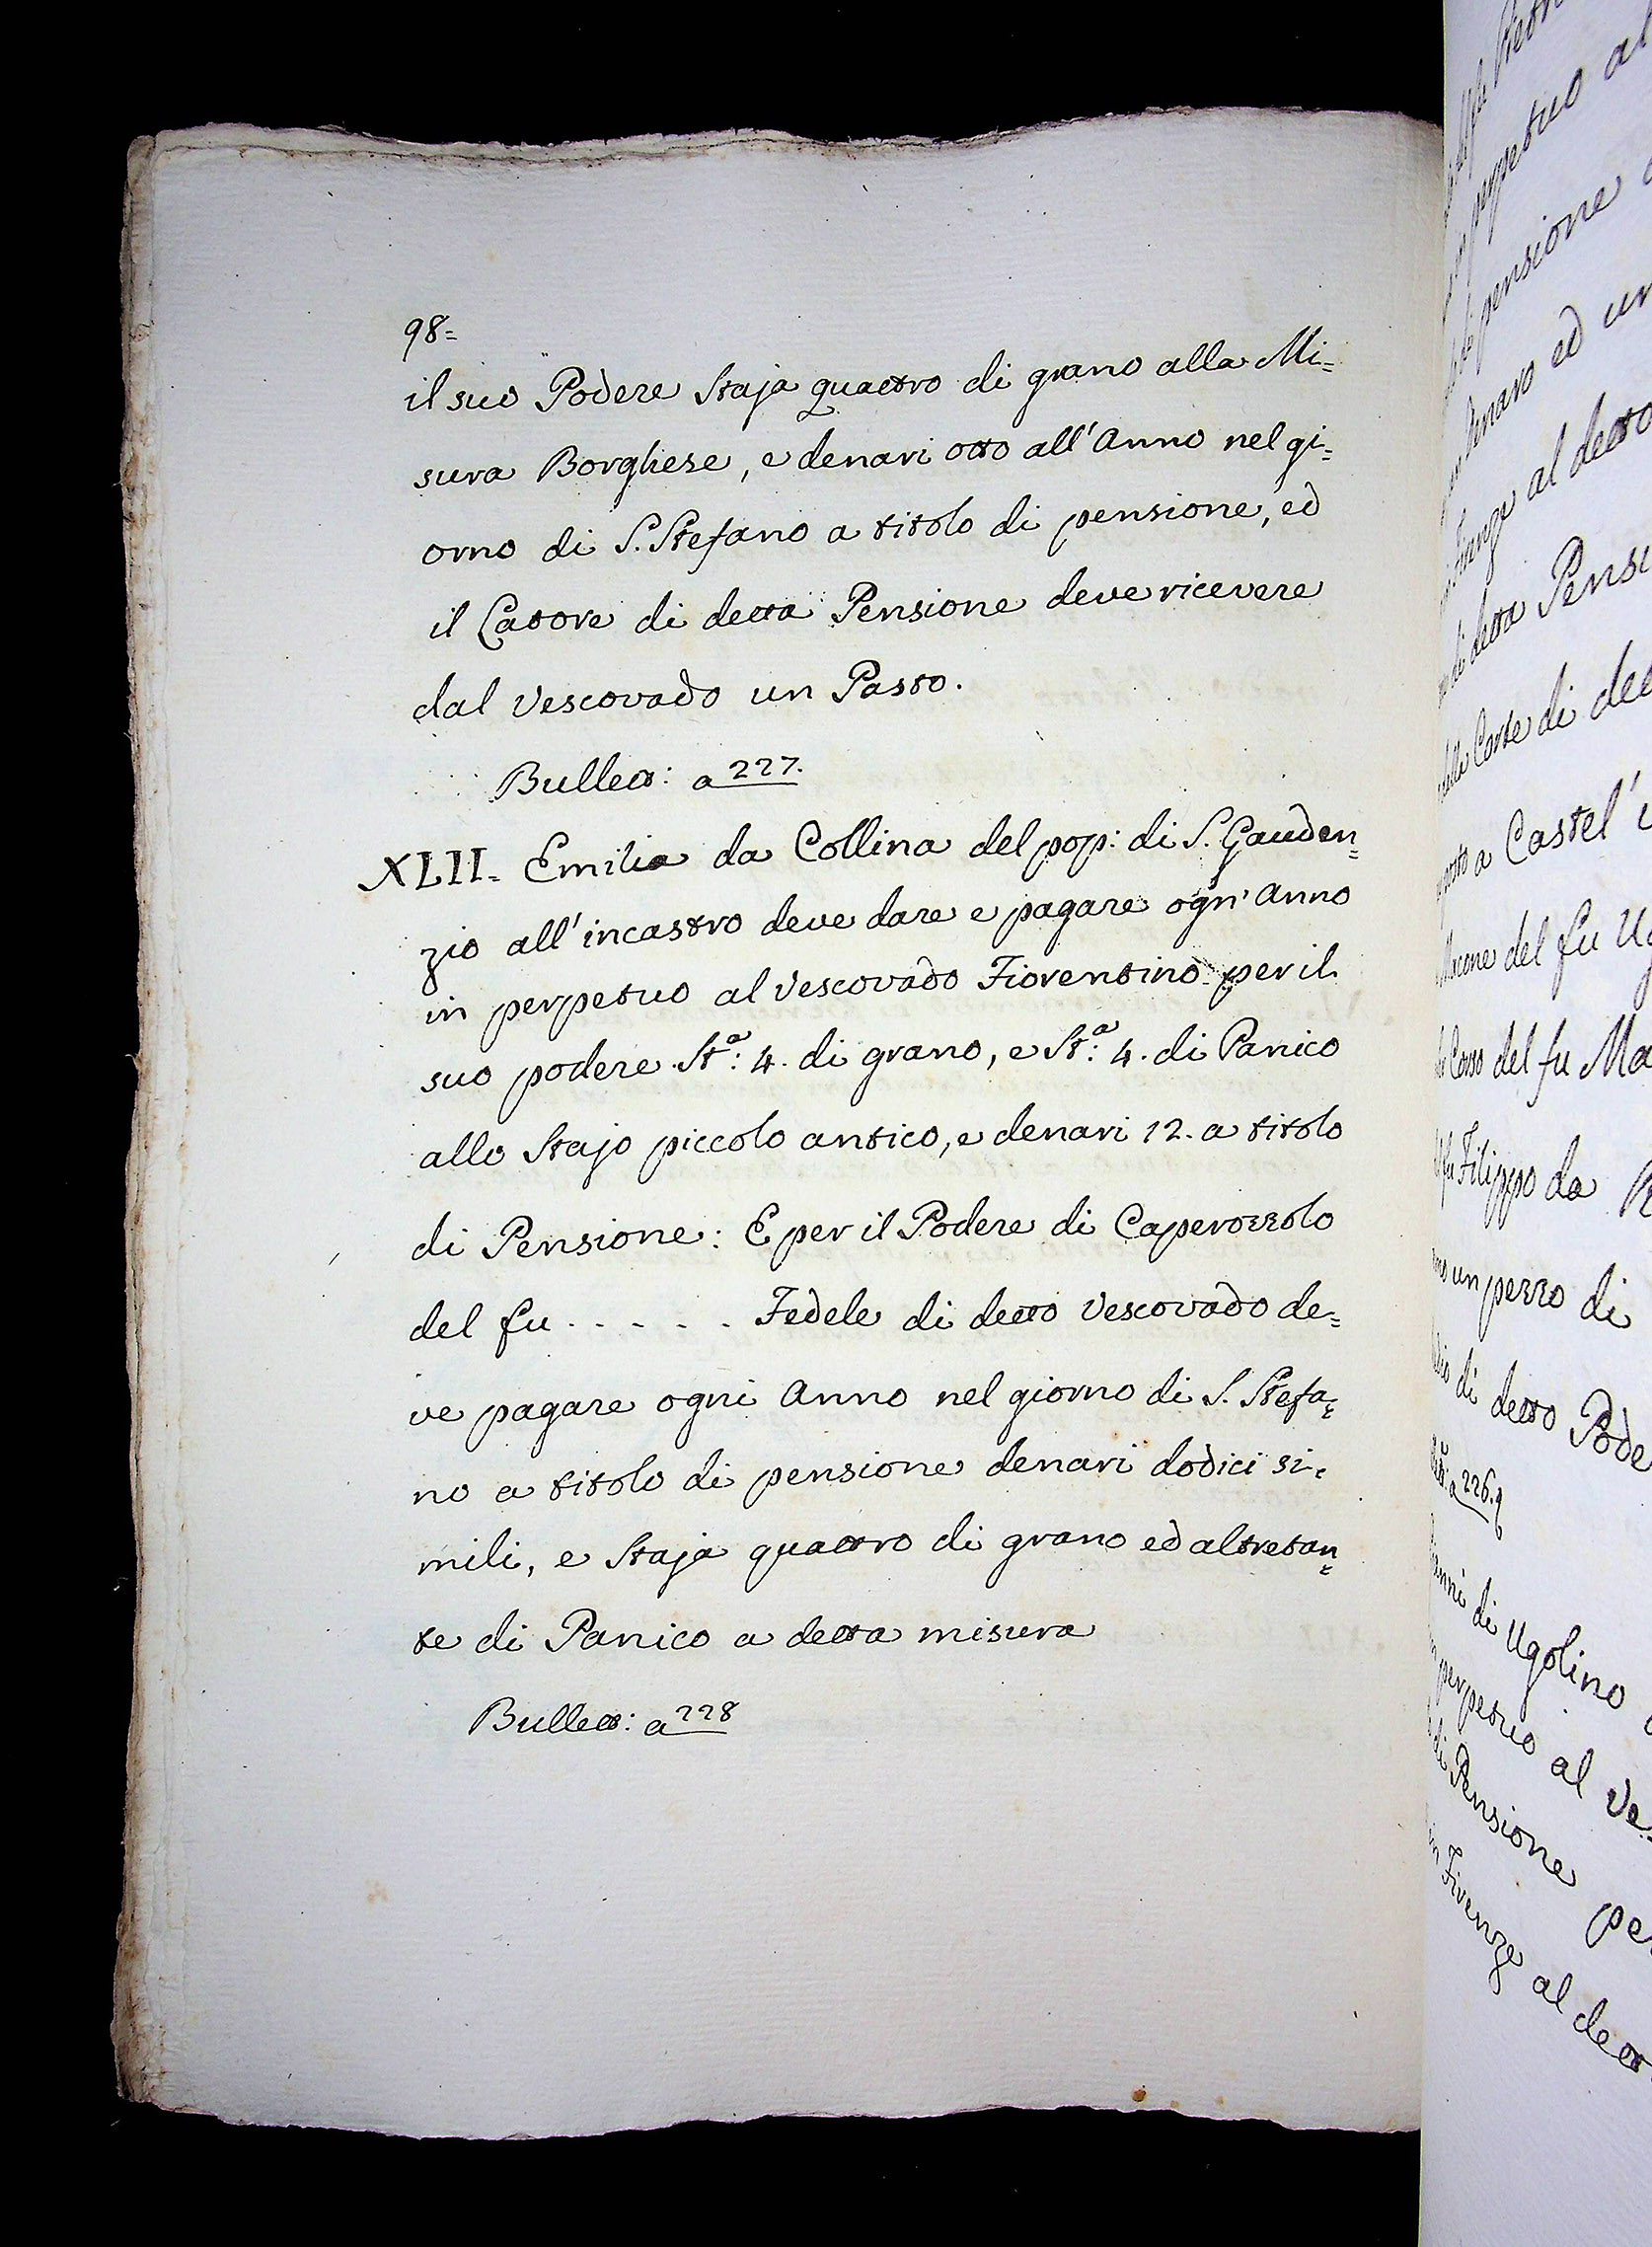 98=
il suo Podere Staja quattro di grano alla Mi=
sura Borghese, e denari otto all'Anno nel gi=
orno di S. Stefano a titolo di pensione, ed
il Latore di detta Pensione deve ricevere
dal Vescovado un Pasto.
Bullett: a 227.
XLII. Emilia da Collina del pop: di S. Gauden=
zio all'incastro deve dare e pagare ogn'Anno
in perpetuo al Vescovado Fiorentino per il
suo podere St.ª: 4. di grano, e St.ª: 4. di Panico
allo Stajo piccolo antico, e denari 12. a titolo
di Pensione: E per il Podere di Caperozzolo
del fu . . . . . Fedele di detto Vescovado de=
ve pagare ogni Anno nel giorno di S. Stefa=
no a titolo di pensione denari dodici si=
mili, e Staja quattro di grano ed altretan=
te di Panico a detta misura
Bullett: a 228
perpetuo al
pensione
denaro ed un
al detto
di detta Pensi
Corte di det
a Castel'
del fu Ug
del fu Ma
Filippo da
un pezzo di
di detto Pode
a 226.
di Ugolino
perpetuo al Ve=
di Pensione pe
in Firenze al dett